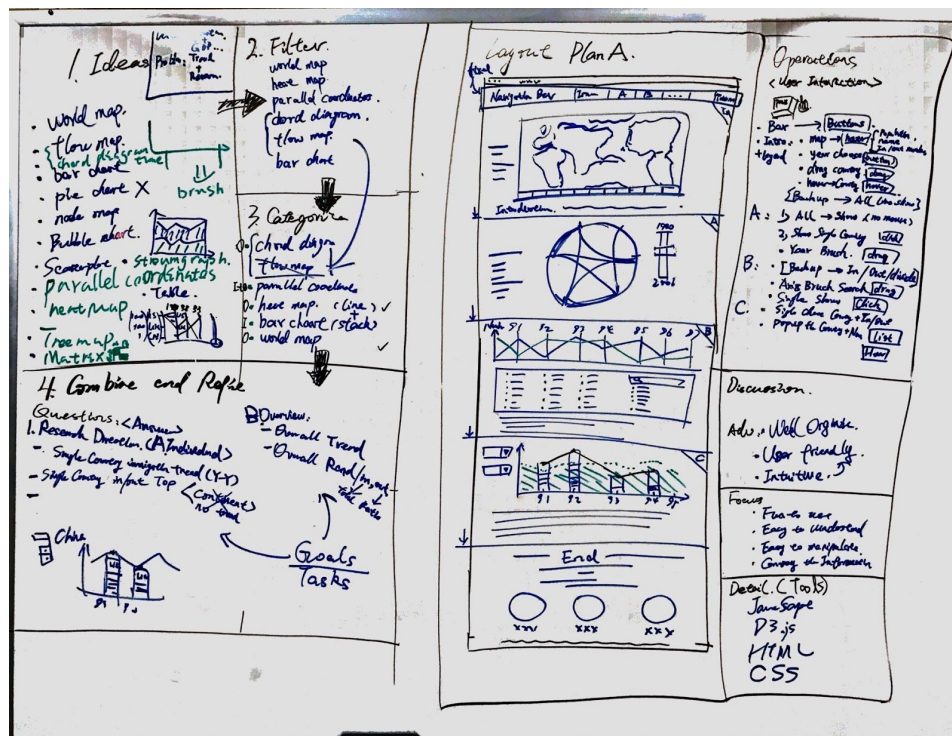 1. Ideas
world map.
flow map.
chord diagram
time
bar chart
pie chart X
brush
node map
Bubble chart.
Scatterplot
streamgraph.
parallel coordinates
Table.
heatmap
Treemap
Matrix
2. Filter
world map
heat map
parallel coordinates.
chord diagram.
flow map.
bar chart
3. Categorize
chord diagram
flow map
parallel coordinate
heat map. (line)
+
bar chart (stack)
world map
4. Combine and Refine
Questions: <Answer>
1. Research Direction. (A Individual)
Single Country immigrate trend (Y-Y)
Single Country in/out Top
<Continent>
no trend
China
91 92
B Overview:
- Overall Trend
- Overall Rank/in, out
Goals
Tasks
Layout Plan A.
fixed
Navigation Bar Intro A B ...
Introduction.
A
1980
2006
91 92 93 94 95 96 97
B
C
91 92 93 94 95
End
xxx xxx xxx
Operations
<User Interaction>
Bar → Buttons
Intro: map → hover
name
+ legend
year choose button
drag country drag
hover Country hover
[Backup → All (no show)
A: 1) All → Show (no mouse)
2) Show Single Country click
Year Brush. drag
B: [Backup → In / Out /
Axis Brush Search drag
Single Show Click
C.
List
Discussion.
Adv: Well Organize.
User friendly.
Intuitive.
Focus
Fun to use
Easy to Understand
Easy to manipulate.
Convey the Information
Detail. (Tools)
JavaScript
D3.js
HTML
CSS